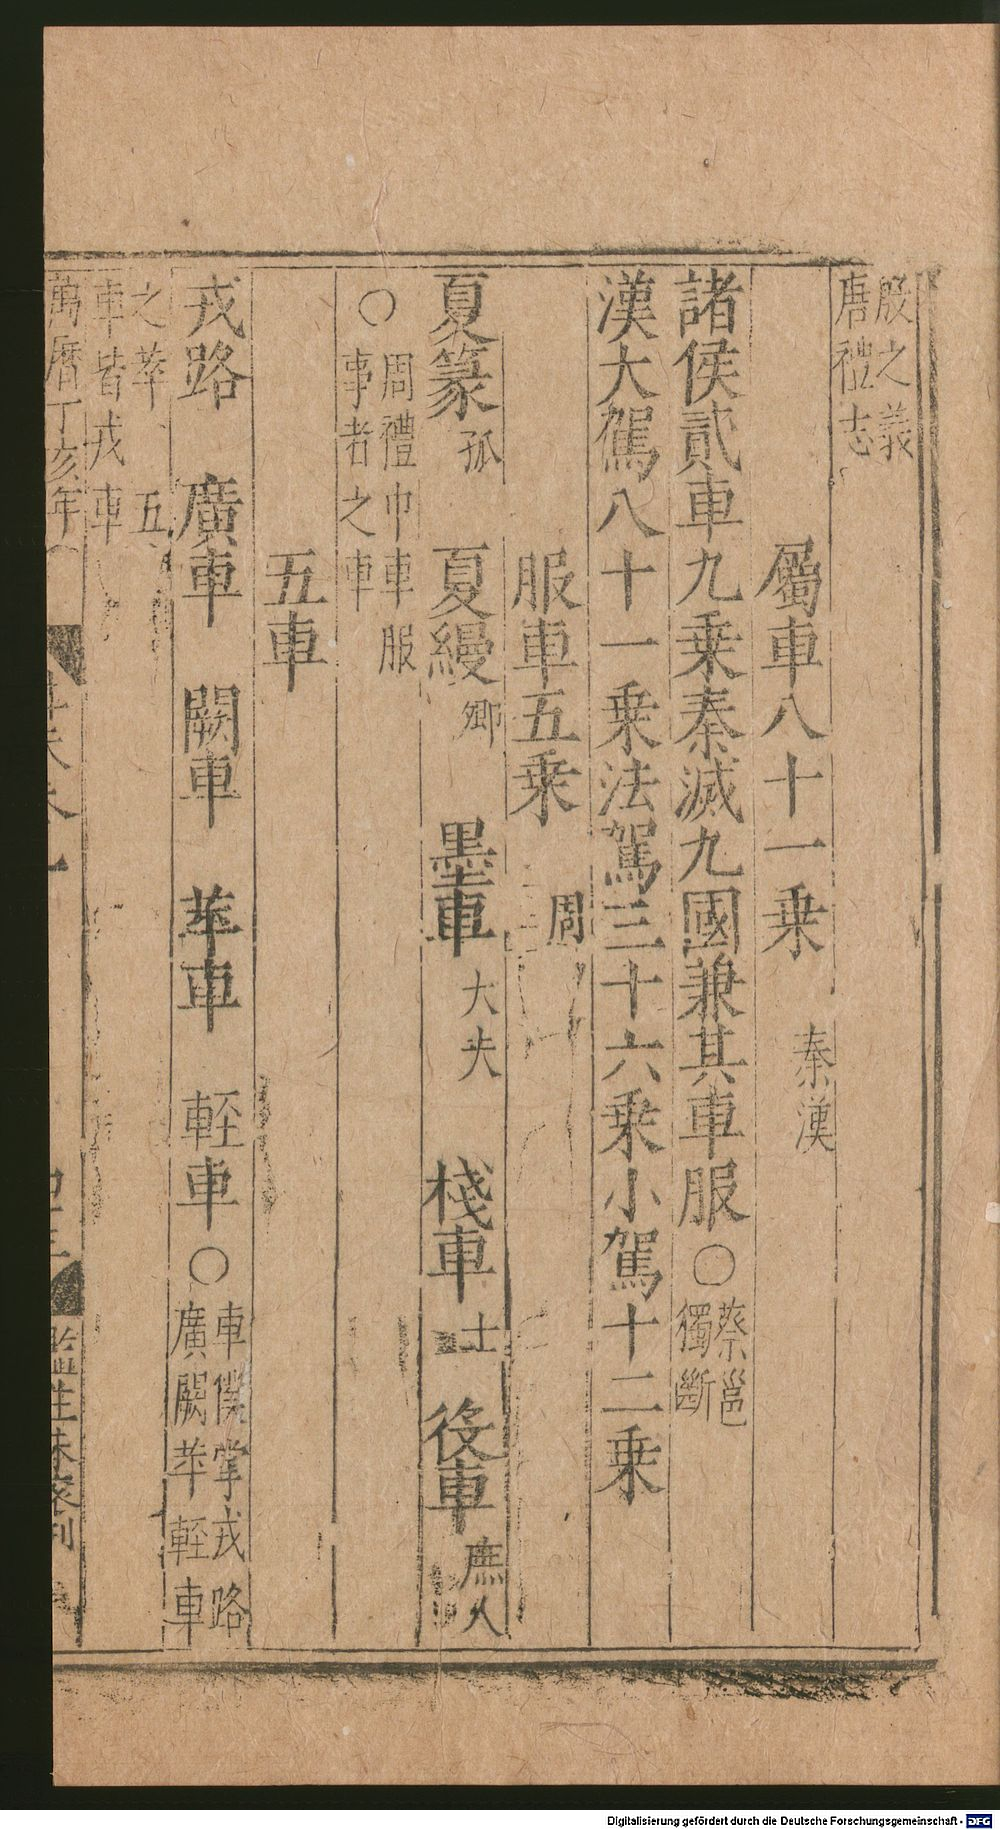 殷之義
唐禮志
屬車八十一乗 秦漢
諸侯貳車九乗秦滅九國兼其車服○蔡邕
獨斷
漢大駕八十一乗法駕三十六乗小駕十二乗
服車五乗 周
夏篆 孤 夏縵 卿 墨車 大夫 棧車 士 役車 庶人
○周禮巾車服
事者之車
五車
戎路 廣車 闕車 苹車 輊車○車僕掌戎路
廣闕苹輊車
之萃 五
車皆戎車
萬曆丁亥年
監生
Digitalisierung gefördert durch die Deutsche Forschungsgemeinschaft - DFG